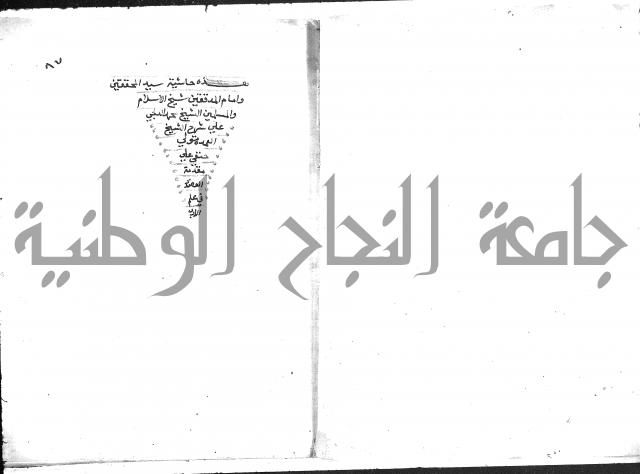 ٨٧
هذه حاشية سيد المحققين
وامام المدققين شيخ الاسلام
والمسلمين الشيخ
على شرح الشيخ
حنفي على
مقدمة
في علم
جامعة النجاح الوطنية